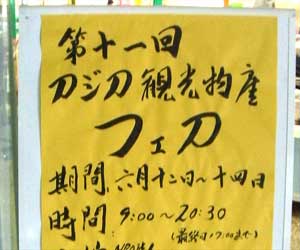 第十一回
刀ジ刀観光物産
フェ刀
期間 六月十二日〜十四日
時間:9:00〜20:30
(最終日17:00まで)